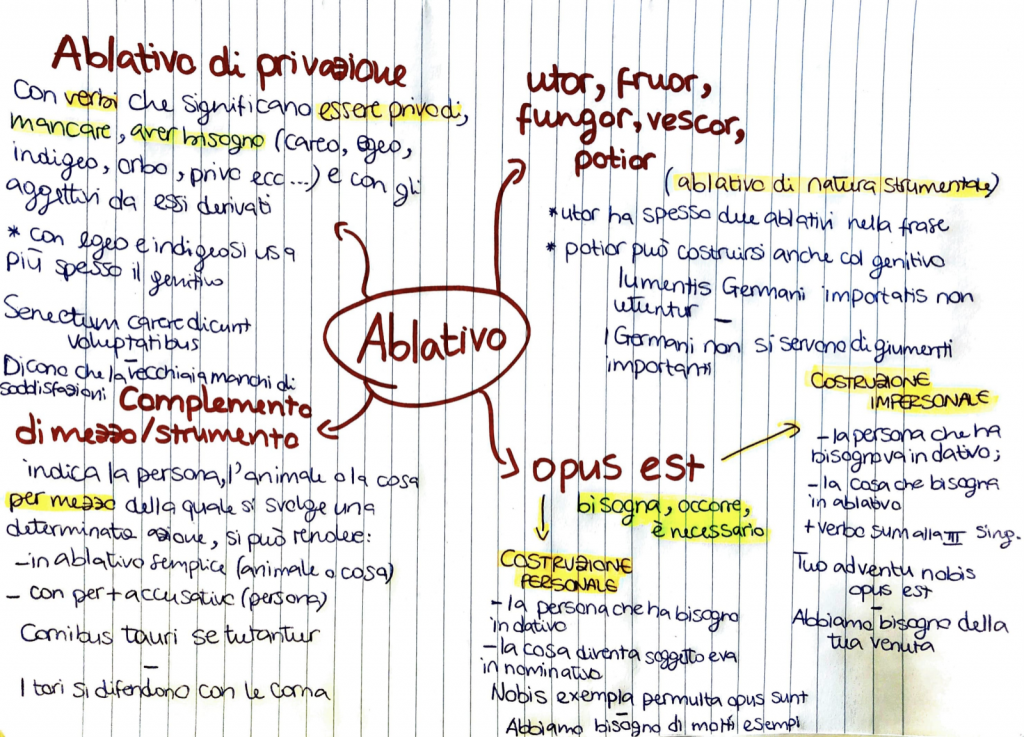 Ablativo di privazione
Con verbi che significano essere privo di,
mancare, aver bisogno (careo, egeo,
indigeo, orbo, privo ecc...) e con gli
aggettivi da essi derivati
* con egeo e indigeo si usa
più spesso il genitivo
Senectum carere dicunt
voluptatibus
–
Dicono che la vecchiaia manchi di
soddisfazioni
utor, fruor,
fungor, vescor,
potior
(ablativo di natura strumentale)
* utor ha spesso due ablativi nella frase
* potior può costruirsi anche col genitivo
Iumentis Germani importatis non
utuntur
–
I Germani non si servono di giumenti
importanti
Ablativo
Complemento
di mezzo/strumento
indica la persona, l'animale o la cosa
per mezzo della quale si svolge una
determinata azione, si può rendere:
– in ablativo semplice (animale o cosa)
– con per + accusativo (persona)
Cornibus tauri se tutantur
–
I tori si difendono con le corna
opus est
bisogna, occorre,
è necessario
COSTRUZIONE
PERSONALE
– la persona che ha bisogno
in dativo
– la cosa diventa soggetto e va
in nominativo
Nobis exempla permulta opus sunt
–
Abbiamo bisogno di molti esempi
COSTRUZIONE
IMPERSONALE
– la persona che ha
bisogno va in dativo;
– la cosa che bisogna
in ablativo
+ verbo sum alla III sing.
Tuo adventu nobis
opus est
–
Abbiamo bisogno della
tua venuta